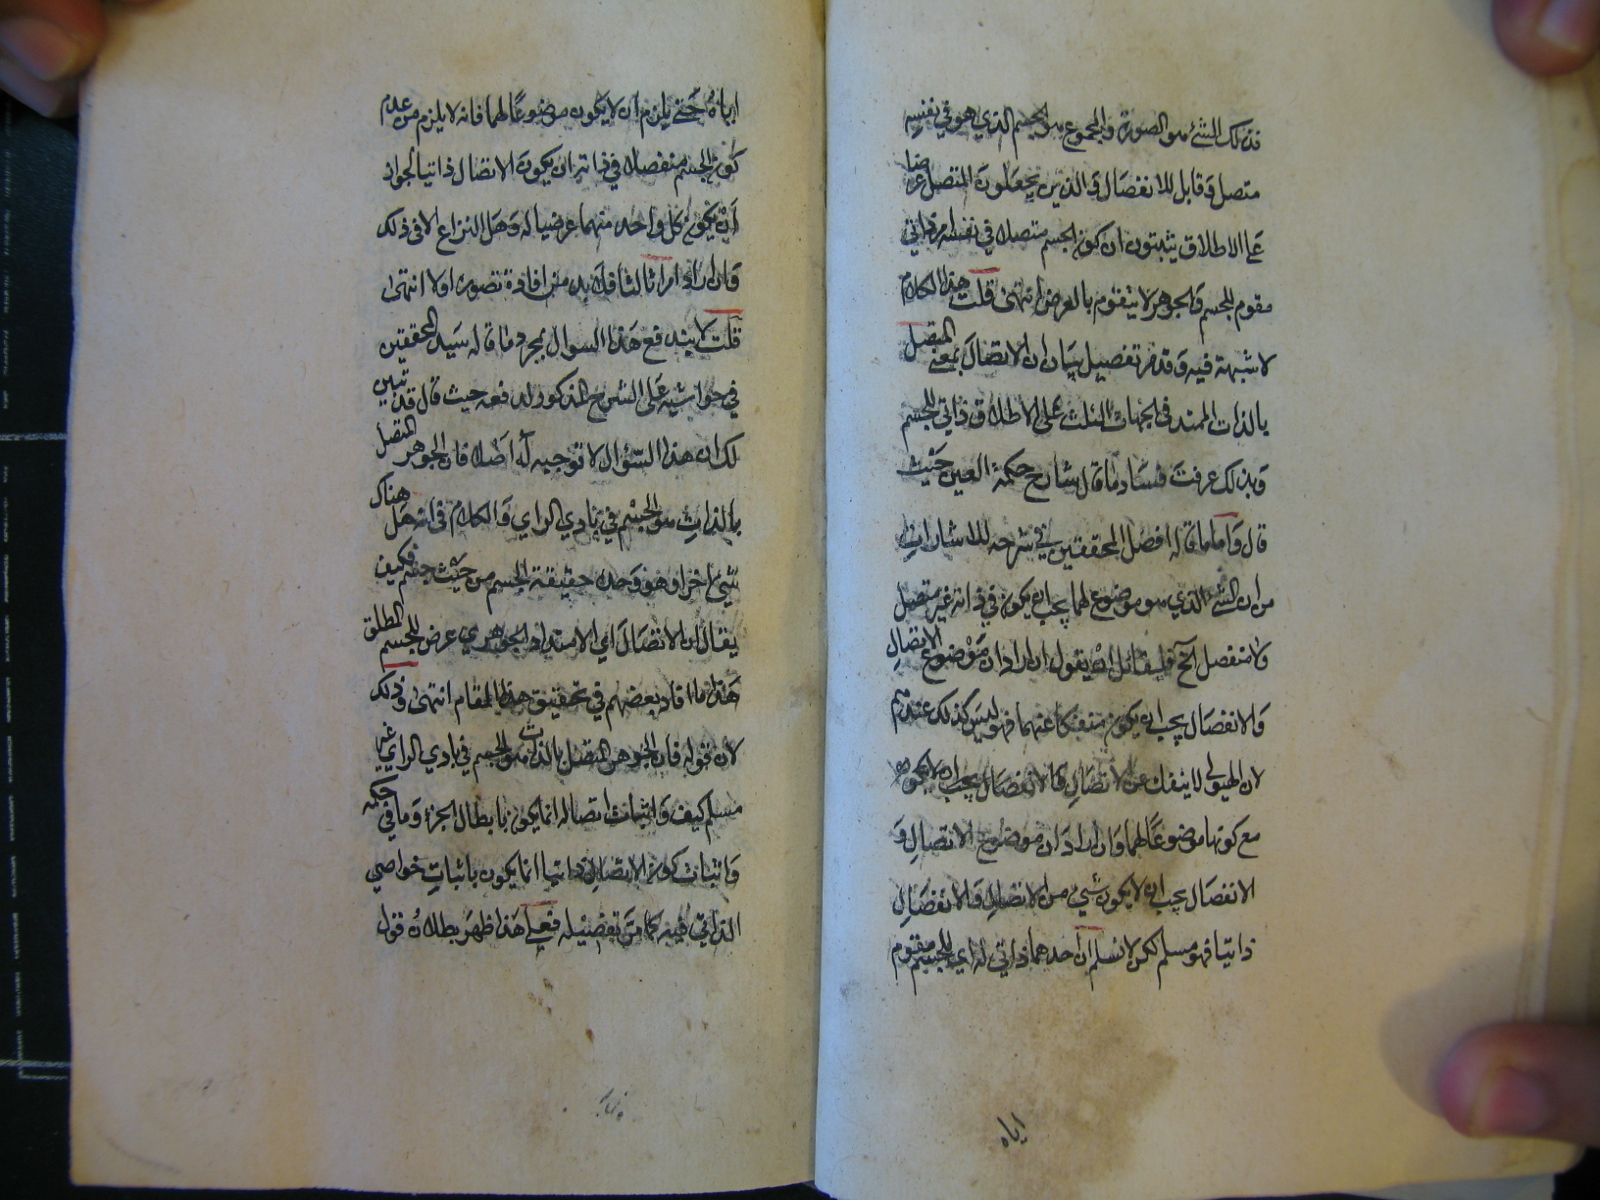 فذلك الشئ هو الصورة والمجموع هو الجسم الذي هو في نفسه
متصل وقابل للانفصال والذين يجعلون المتصل عرضا
على الاطلاق يثبتون ان كون الجسم متصلا في نفسه ذاتي
مقوم للجسم والجوهر لا يتقوم بالعرض انتهى قلت هذا الكلام
لا شبهة فيه وقد مر تفصيل بيان ان الاتصال بمعنى المتصل
بالذات الممتد في الجهات الثلث على الاطلاق ذاتي للجسم
وبذلك عرفت فساد ما قال شارح حكمة العين حيث
قال واما ما قاله افضل المحققين في شرحه للاشارات
من ان الشئ الذي هو موضوع لهما يجب ان يكون في ذاته غير متصل
ولا منفصل الخ فلقائل ان يقول ان اراد ان موضوع الاتصال
والانفصال يجب ان يكون منفكا عنهما فهو ليس كذلك عندهم
لان الهيولى لا ينفك عن الاتصال والانفصال يجب ان لا يكون
مع كونها موضوعا لهما وان اراد ان موضوع الاتصال و
الانفصال يجب ان لا يكون شئ من الاتصال والانفصال
ذاتيا فهو مسلم لكن لا نسلم ان احدهما ذاتي له اي للجسم مقوم
اياه
اياه حتى يلزم ان لا يكون موضوعا لهما فانه لا يلزم من عدم
كون الجسم منفصلا في ذاته ان يكون الاتصال ذاتيا لجواز
ان يكون كل واحد منهما عرضيا له وهل النزاع الا في ذلك
وان اراد امرا ثالثا فلا بد من افادة تصوره اولا انتهى
قلت لا يندفع هذا السوال بمجرد ما قاله سيد المحققين
في حواشيه على الشرح المذكور لدفعه حيث قال قد تبين
لك ان هذا السؤال لا توجيه له اصلا فان الجوهر المتصل
بالذات هو الجسم في بادي الراي والكلام في انه هل هناك
شئ اخر او هو وحده حقيقة الجسم من حيث جسم فكيف
يقال ان الاتصال اي الامتداد الجوهري عرض للجسم المطلق
هذا ما افاد بعضهم في تحقيق هذا المقام انتهى وذلك
لان قوله فان الجوهر المتصل بالذات هو الجسم في بادي الراي غير
مسلم كيف واثبات اتصاله انما يكون بابطال الجزء وما في حكمه
واثبات كون الاتصال ذاتيا انما يكون باثبات خواصي
الذاتي فيه كما مر تفصيله فعلى هذا ظهر بطلان قول